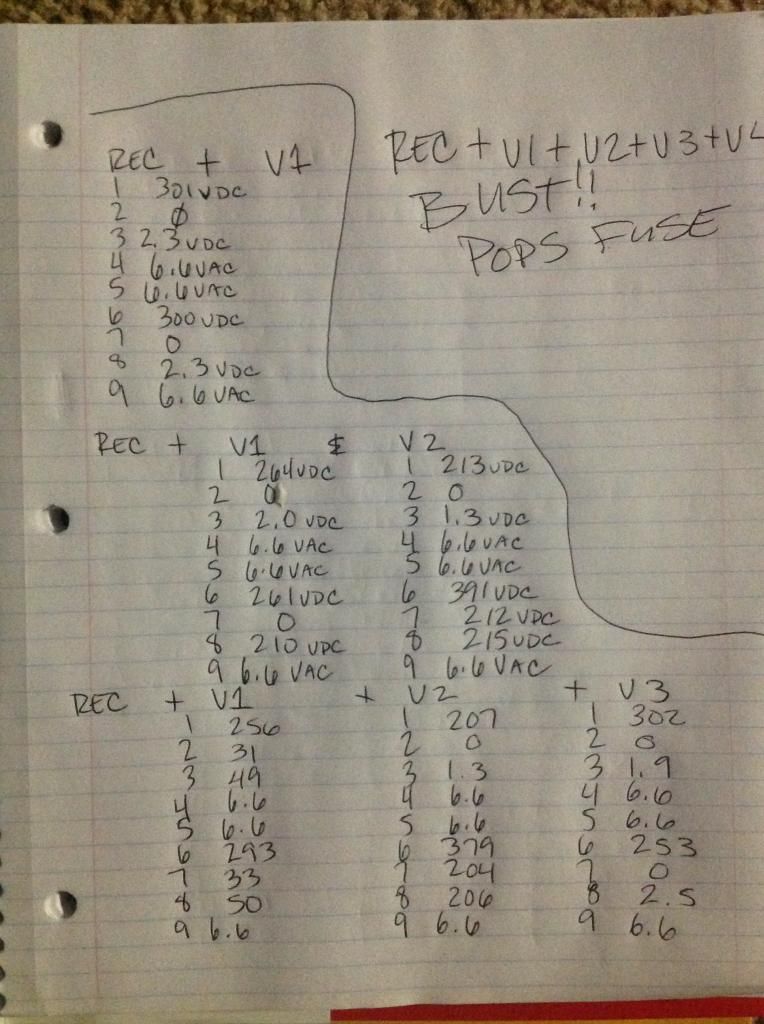 REC + V1
1 301VDC
2 Ø
3 2.3 VDC
4 6.6VAC
5 6.6VAC
6 300VDC
7 0
8 2.3 VDC
9 6.6 VAC
REC + V1 + V2 + V3 + V4
BUST!!
POPS FUSE
REC + V1 & V2
1 264VDC 1 213VDC
2 0 2 0
3 2.0 VDC 3 1.3 VDC
4 6.6 VAC 4 6.6VAC
5 6.6VAC 5 6.6VAC
6 261VDC 6 391VDC
7 0 7 212VDC
8 210 VDC 8 215VDC
9 6.6 VAC 9 6.6 VAC
REC + V1 + V2 + V3
1 256 1 207 1 302
2 31 2 0 2 0
3 49 3 1.3 3 1.9
4 6.6 4 6.6 4 6.6
5 6.6 5 6.6 5 6.6
6 293 6 379 6 253
7 33 7 204 7 0
8 50 8 206 8 2.5
9 6.6 9 6.6 9 6.6